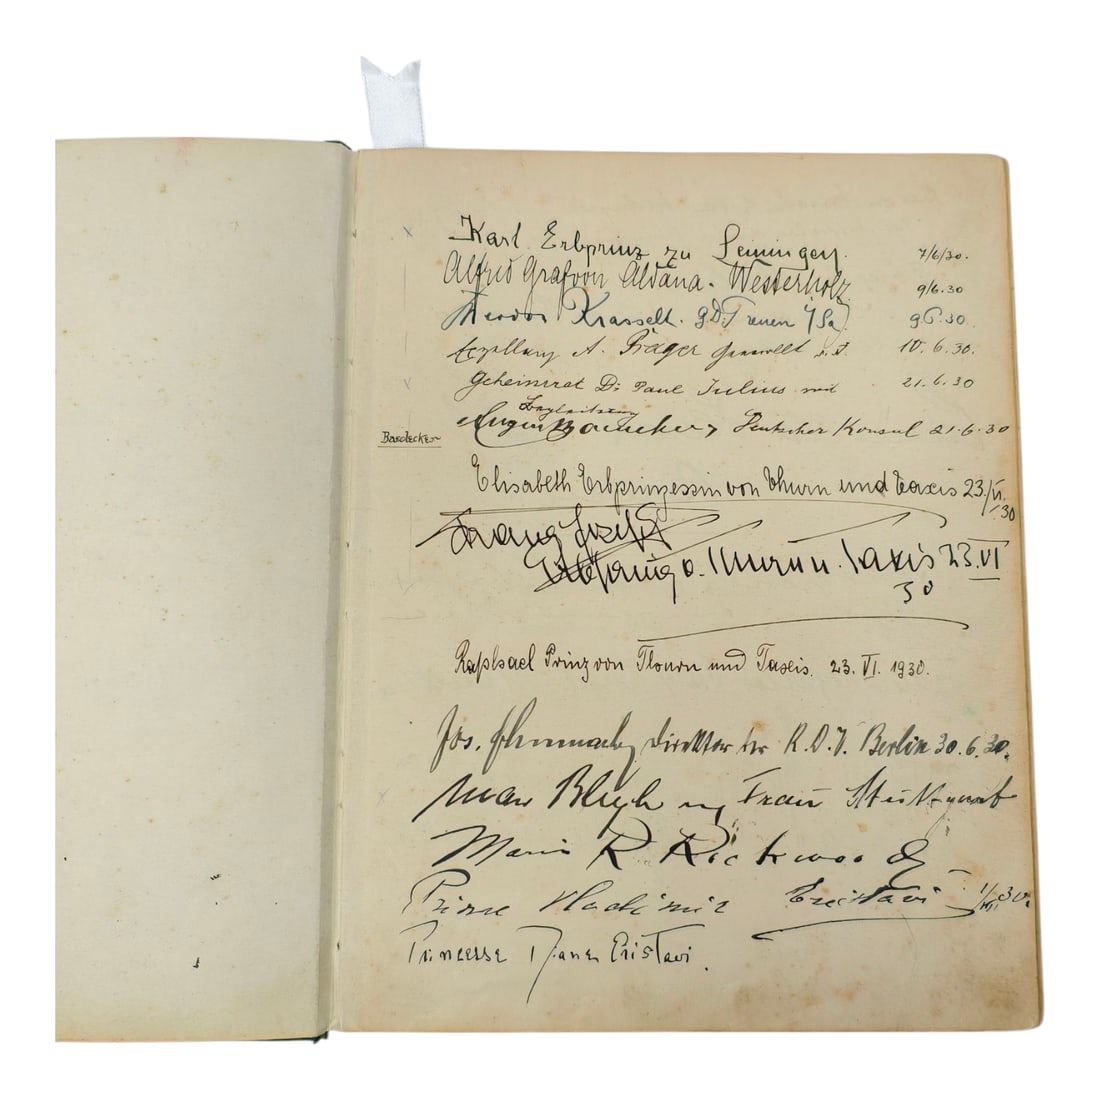 Karl Erbprinz zu Leiningen. 7/6/30.
Alfred Graf von Aldana-Westerholz 9/6.30
Theodor Krasselt. 9.6.30
A. Präger 10.6.30.
Geheimrat Dr Paul Julius mit 21.6.30
Begleitung
Eugen Deutscher Konsul 21.6.30
Elisabeth Erbprinzessin von Thurn und Taxis 23./VI.30
Franz Josef
Erbprinz v. Thurn u. Taxis 23.VI
30
Raphael Prinz von Thurn und Taxis. 23. VI. 1930.
Jos. Direktor der Berlin 30.6.30.
Max Frau Stuttgart
R Rockwood
Prince Wladimir Eristavi 1/VII.30.
Princesse Diane Eristavi.